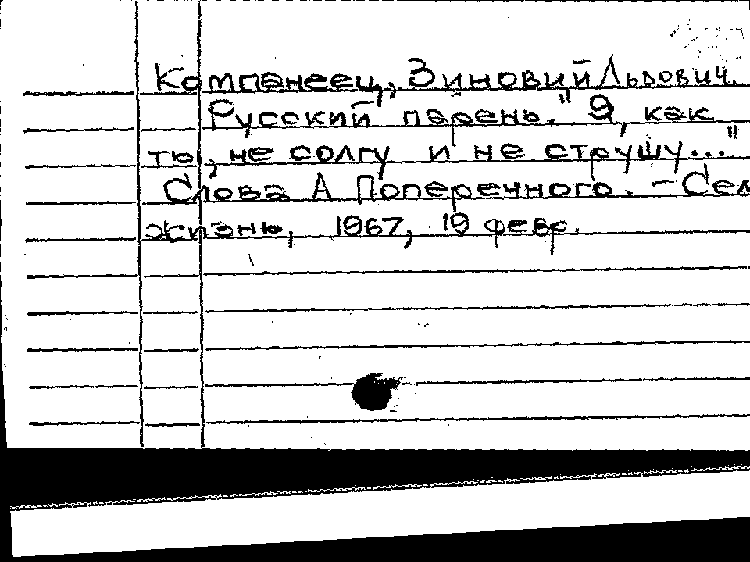 Компанеец, Зиновий Львович.
Русский парень. "Я, как
ты, не солгу и не струшу..."
Слова А Поперечного. - Сел
жизнь, 1967, 19 февр.